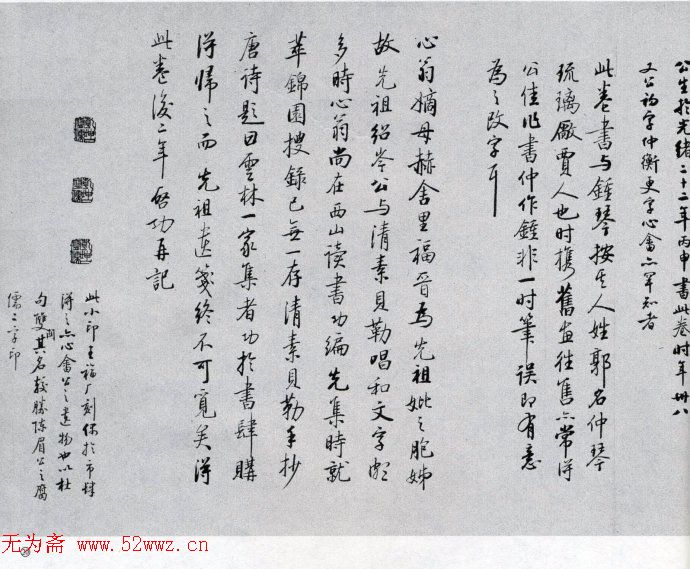 公生于光緒二十二年丙申書此卷时年卅八
又公初字仲衡更字心畬亦罕知者
此卷書与鍾琴按其人姓郭名仲琴
琉璃廠賈人也时携舊畫往售亦常得
公佳作書仲作鍾非一时筆误即有意
為之改字耳
心翁嫡母赫舍里福晉為先祖妣之胞姊
故先祖绍岑公与清素貝勒唱和文字頗
多時心翁尚在西山读書功編先集時就
萃錦園搜録已無一存清素貝勒手抄
唐诗題曰雲林一家集者功於書肆購
得歸之而先祖遺箋終不可覓矣得
此卷後二年 啓功再記
此小印王福厂刻偶於市肆
得之亦心畬公之遺物也以杜
句雙關其名較勝陈眉公之腐
儒二字印
无为斋 www.52wwz.cn